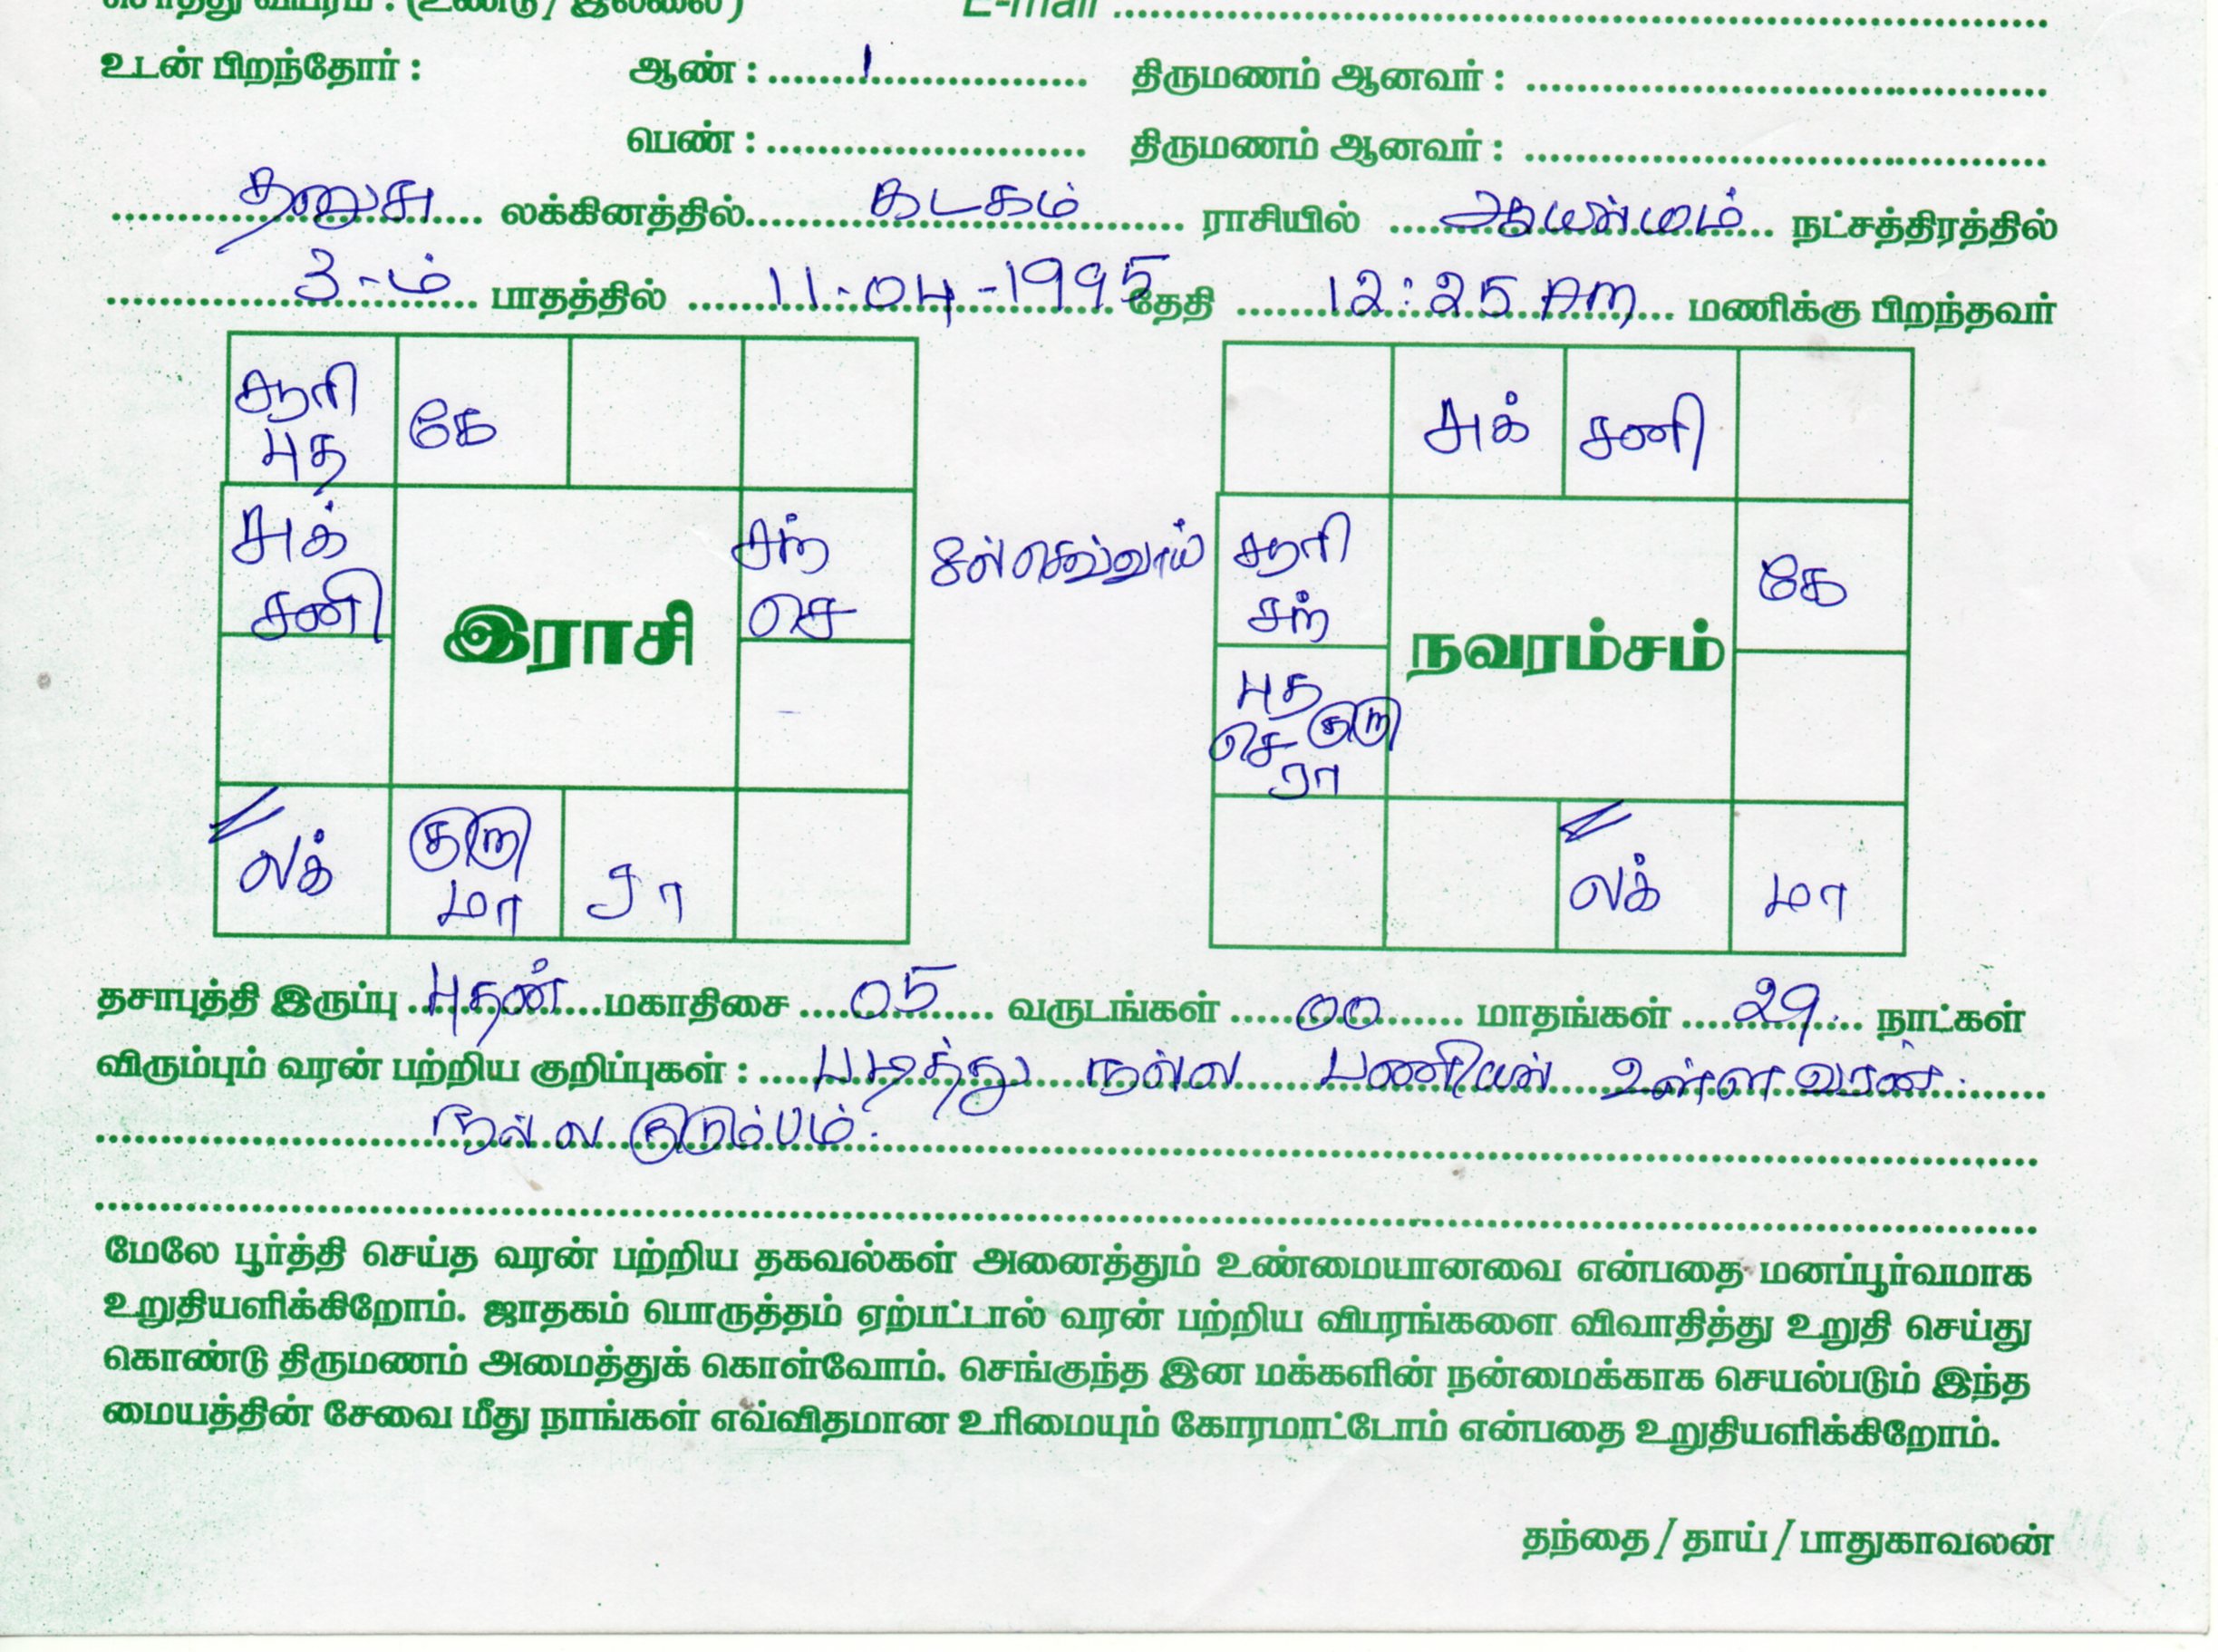 சொத்து விபரம் : (உண்டு / இல்லை) E-mail
உடன் பிறந்தோர் : ஆண் : 1 திருமணம் ஆனவர் :
பெண் : திருமணம் ஆனவர் :
தனுசு லக்கினத்தில் கடகம் ராசியில் ஆயில்யம் நட்சத்திரத்தில்
3-ம் பாதத்தில் 11-04-1995 தேதி 12:25 AM மணிக்கு பிறந்தவர்
சூரி கே
புத
சுக் சந்
சனி செ
இராசி
8ல் செவ்வாய்
லக் குரு ரா
மா
சுக் சனி
சூரி கே
சந்
நவரம்சம்
புத
செ குரு
ரா
லக் மா
தசாபுத்தி இருப்பு புதன் மகாதிசை 05 வருடங்கள் 00 மாதங்கள் 29 நாட்கள்
விரும்பும் வரன் பற்றிய குறிப்புகள் : படித்து நல்ல பணியில் உள்ள வரன்.
நல்ல குடும்பம்.
மேலே பூர்த்தி செய்த வரன் பற்றிய தகவல்கள் அனைத்தும் உண்மையானவை என்பதை மனப்பூர்வமாக
உறுதியளிக்கிறோம். ஜாதகம் பொருத்தம் ஏற்பட்டால் வரன் பற்றிய விபரங்களை விவாதித்து உறுதி செய்து
கொண்டு திருமணம் அமைத்துக் கொள்வோம். செங்குந்த இன மக்களின் நன்மைக்காக செயல்படும் இந்த
மையத்தின் சேவை மீது நாங்கள் எவ்விதமான உரிமையும் கோரமாட்டோம் என்பதை உறுதியளிக்கிறோம்.
தந்தை / தாய் / பாதுகாவலன்